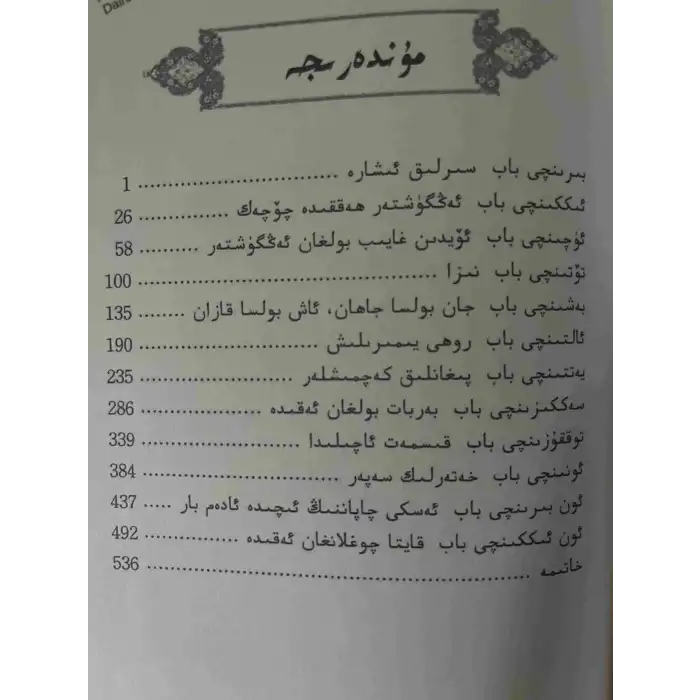 مۇندەرىجە
بىرىنچى باب سىرلىق ئىشارە ................................. 1
ئىككىنچى باب ئەڭگۈشتەر ھەققىدە چۆچەك ............... 26
ئۈچىنچى باب ئۆيدىن غايىب بولغان ئەڭگۈشتەر .......... 58
تۆتىنچى باب نىزا ................................. 100
بەشىنچى باب جان بولسا جاھان، ئاش بولسا قازان ........ 135
ئالتىنچى باب روھى يىمىرىلىش .............................. 190
يەتتىنچى باب پىغانلىق كەچمىشلەر ......................... 235
سەككىزىنچى باب بەربات بولغان ئەقىدە .................... 286
توققۇزىنچى باب قىسمەت ئاچىلىدا .......................... 339
ئونىنچى باب خەتەرلىك سەپەر ............................... 384
ئون بىرىنچى باب ئەسكى چاپاننىڭ ئىچىدە ئادەم بار ..... 437
ئون ئىككىنچى باب قايتا چوغلانغان ئەقىدە ................ 492
خاتىمە .................................................. 536